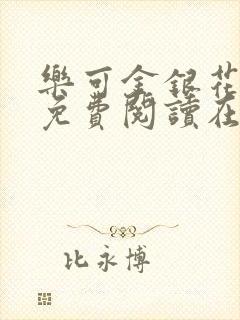 樂可金銀花
免費閱讀在
比永博